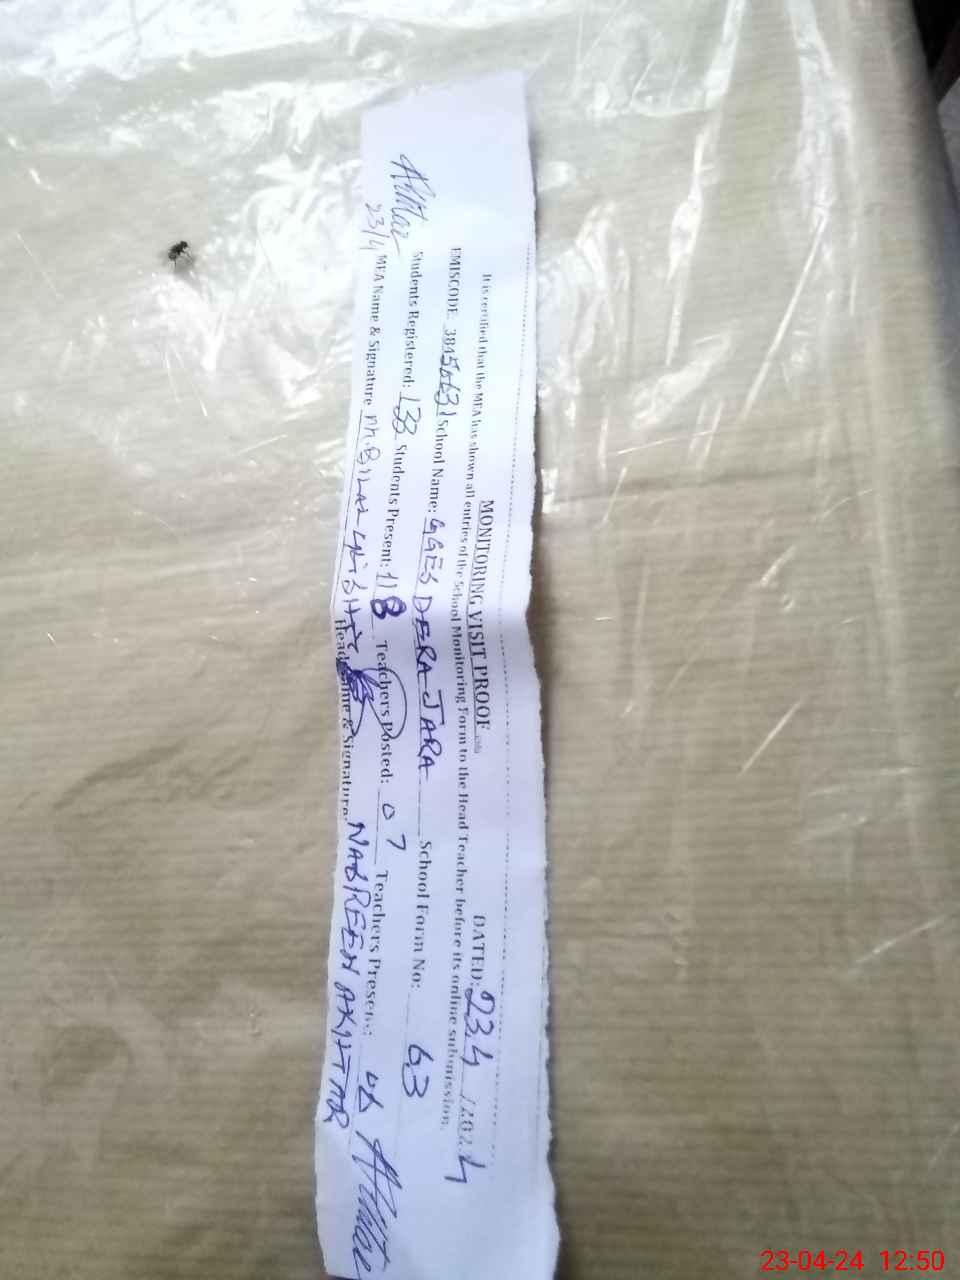 MONITORING VISIT PROOF DATED: 23.4 /2024
It is certified that the MEA has shown all entries of the School Monitoring Form to the Head Teacher before its online submission.
EMISCODE 38450631 School Name: GGES DERA JARA School Form No: 63
Students Registered: 133 Students Present: 118 Teachers Posted: 07 Teachers Present:
MEA Name & Signature M. BILAL Head Name & Signature: NASREEN AKHTAR
23/4
23-04-24 12:50